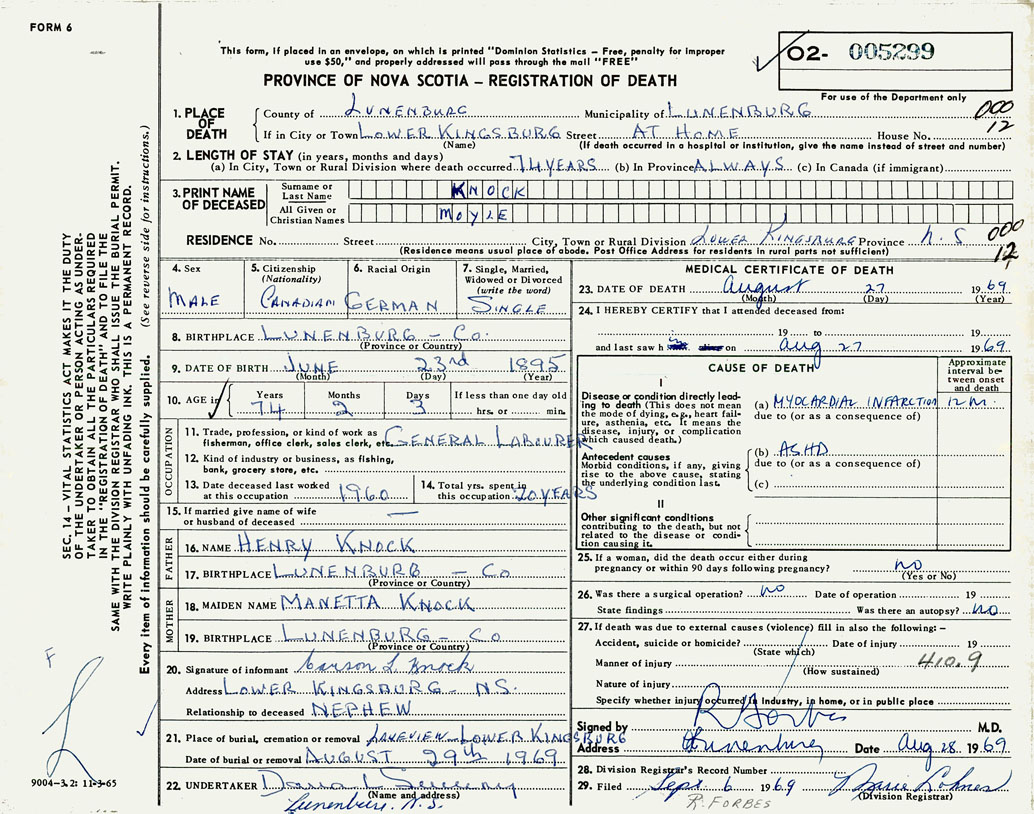 FORM 6
This form, if placed in an envelope, on which is printed "Dominion Statistics – Free, penalty for improper
use $50," and properly addressed will pass through the mail "FREE"
O2- 005299
For use of the Department only
PROVINCE OF NOVA SCOTIA – REGISTRATION OF DEATH
SEC. 14 – VITAL STATISTICS ACT MAKES IT THE DUTY
OF THE UNDERTAKER OR PERSON ACTING AS UNDER-
TAKER TO OBTAIN ALL THE PARTICULARS REQUIRED
IN THE "REGISTRATION OF DEATH" AND TO FILE THE
SAME WITH THE DIVISION REGISTRAR WHO SHALL ISSUE THE BURIAL PERMIT.
WRITE PLAINLY WITH UNFADING INK. THIS IS A PERMANENT RECORD.
Every item of information should be carefully supplied. (See reverse side for instructions.)
F
9004–3.2: 11-3-65
1. PLACE OF DEATH County of LUNENBURG Municipality of LUNENBURG 000
If in City or Town LOWER KINGSBURG Street AT HOME House No. 12
(Name) (If death occurred in a hospital or institution, give the name instead of street and number)
2. LENGTH OF STAY (in years, months and days)
(a) In City, Town or Rural Division where death occurred 74 YEARS (b) In Province ALWAYS (c) In Canada (if immigrant)
3. PRINT NAME OF DECEASED Surname or Last Name KNOCK
All Given or Christian Names MOYLE
RESIDENCE No. Street City, Town or Rural Division LOWER KINGSBURG Province N.S 000
(Residence means usual place of abode. Post Office Address for residents in rural parts not sufficient) 12
4. Sex MALE
5. Citizenship (Nationality) CANADIAN
6. Racial Origin GERMAN
7. Single, Married, Widowed or Divorced (write the word) SINGLE
8. BIRTHPLACE LUNENBURG – Co.
(Province or Country)
9. DATE OF BIRTH JUNE 23rd 1895
(Month) (Day) (Year)
10. AGE in Years Months Days If less than one day old
74 2 3 hrs. or min.
OCCUPATION
11. Trade, profession, or kind of work as
fisherman, office clerk, sales clerk, etc. GENERAL LABOURER
12. Kind of industry or business, as fishing,
bank, grocery store, etc.
13. Date deceased last worked at this occupation 1960
14. Total yrs. spent in this occupation 20 YEARS
15. If married give name of wife
or husband of deceased —
FATHER
16. NAME HENRY KNOCK
17. BIRTHPLACE LUNENBURG – Co
(Province or Country)
MOTHER
18. MAIDEN NAME MANETTA KNOCK
19. BIRTHPLACE LUNENBURG – Co
(Province or Country)
20. Signature of informant Carson L Knock
Address LOWER KINGSBURG – NS.
Relationship to deceased NEPHEW
21. Place of burial, cremation or removal LOWER KINGSBURG
Date of burial or removal AUGUST 29th 1969
22. UNDERTAKER
(Name and address)
Lunenburg, N.S.
MEDICAL CERTIFICATE OF DEATH
23. DATE OF DEATH August 27 1969
(Month) (Day) (Year)
24. I HEREBY CERTIFY that I attended deceased from:
19 to 19
and last saw h on Aug 27 1969
CAUSE OF DEATH
Approximate interval between onset and death
I
Disease or condition directly lead-
ing to death (This does not mean
the mode of dying, e.g., heart fail-
ure, asthenia, etc. It means the
disease, injury, or complication
which caused death.)
(a) MYOCARDIAL INFARCTION
due to (or as a consequence of)
Antecedent causes
Morbid conditions, if any, giving
rise to the above cause, stating
the underlying condition last.
(b) ASHD
due to (or as a consequence of)
(c)
II
Other significant conditions
contributing to the death, but not
related to the disease or condi-
tion causing it.
25. If a woman, did the death occur either during
pregnancy or within 90 days following pregnancy? no
(Yes or No)
26. Was there a surgical operation? no Date of operation 19
State findings Was there an autopsy? no
27. If death was due to external causes (violence) fill in also the following:–
Accident, suicide or homicide? Date of injury 19
(State which)
Manner of injury 410.9
(How sustained)
Nature of injury
Specify whether injury occurred in Industry, in home, or in public place
Signed by R Forbes M.D.
Address Lunenburg Date Aug 28 1969
28. Division Registrar's Record Number
29. Filed Sept. 6 1969
(Division Registrar)
R. FORBES